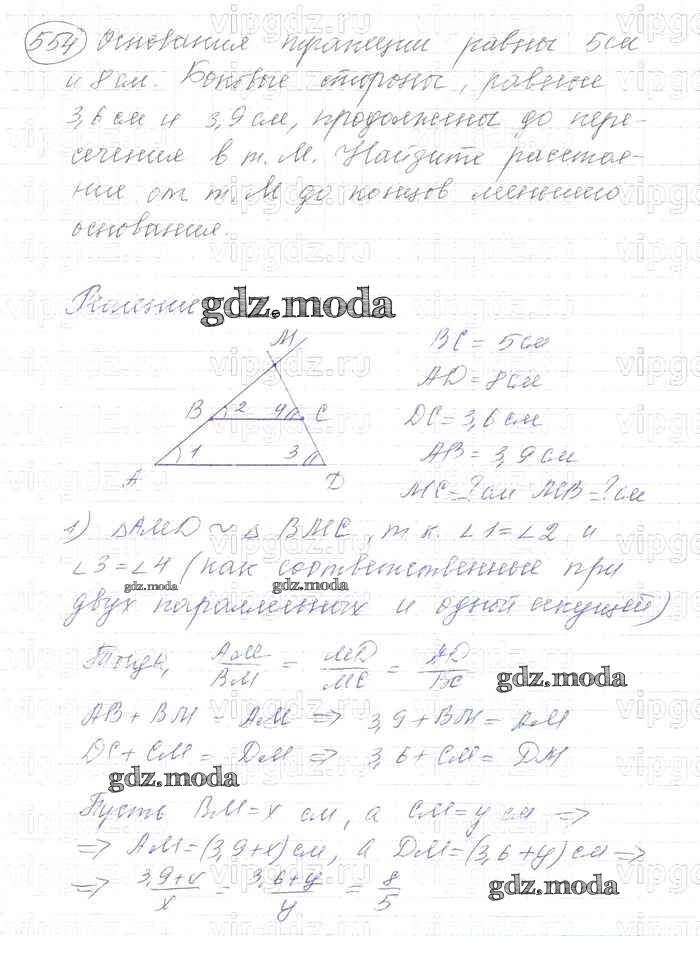 554 Основания трапеции равны 5см
и 8 см. Боковые стороны, равные
3,6 см и 3,9 см, продолжены до пере-
сечения в т. М. Найдите расстоя-
ние от т. М до концов меньшего
основания.
Решение
gdz.moda
M
B 2 4 C
1 3
A D
BC = 5см
AD = 8см
DC = 3,6 см
AB = 3,9 см
MC = ? см MB = ? см
1) △AMD ~ △ BMC, т. к. ∠1 = ∠2 и
∠3 = ∠4 (как соответственные при
gdz.moda gdz.moda
двух параллельных и одной секущей)
Тогда, AM/BM = MD/MC = AD/BC
gdz.moda
AB + BM = AM ⇒ 3,9 + BM = AM
DC + CM = DM ⇒ 3,6 + CM = DM
gdz.moda
Пусть BM = x см, а CM = y см ⇒
⇒ AM = (3,9 + x) см, а DM = (3,6 + y) см ⇒
⇒ 3,9 + x/x = 3,6 + y/y = 8/5
gdz.moda
vipgdz.ru